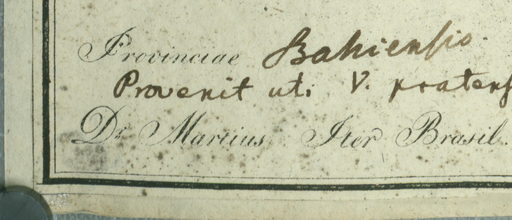 Provinciae Bahiensis.
Provenit uti V. pratens
Dr Martius Iter Brasil.